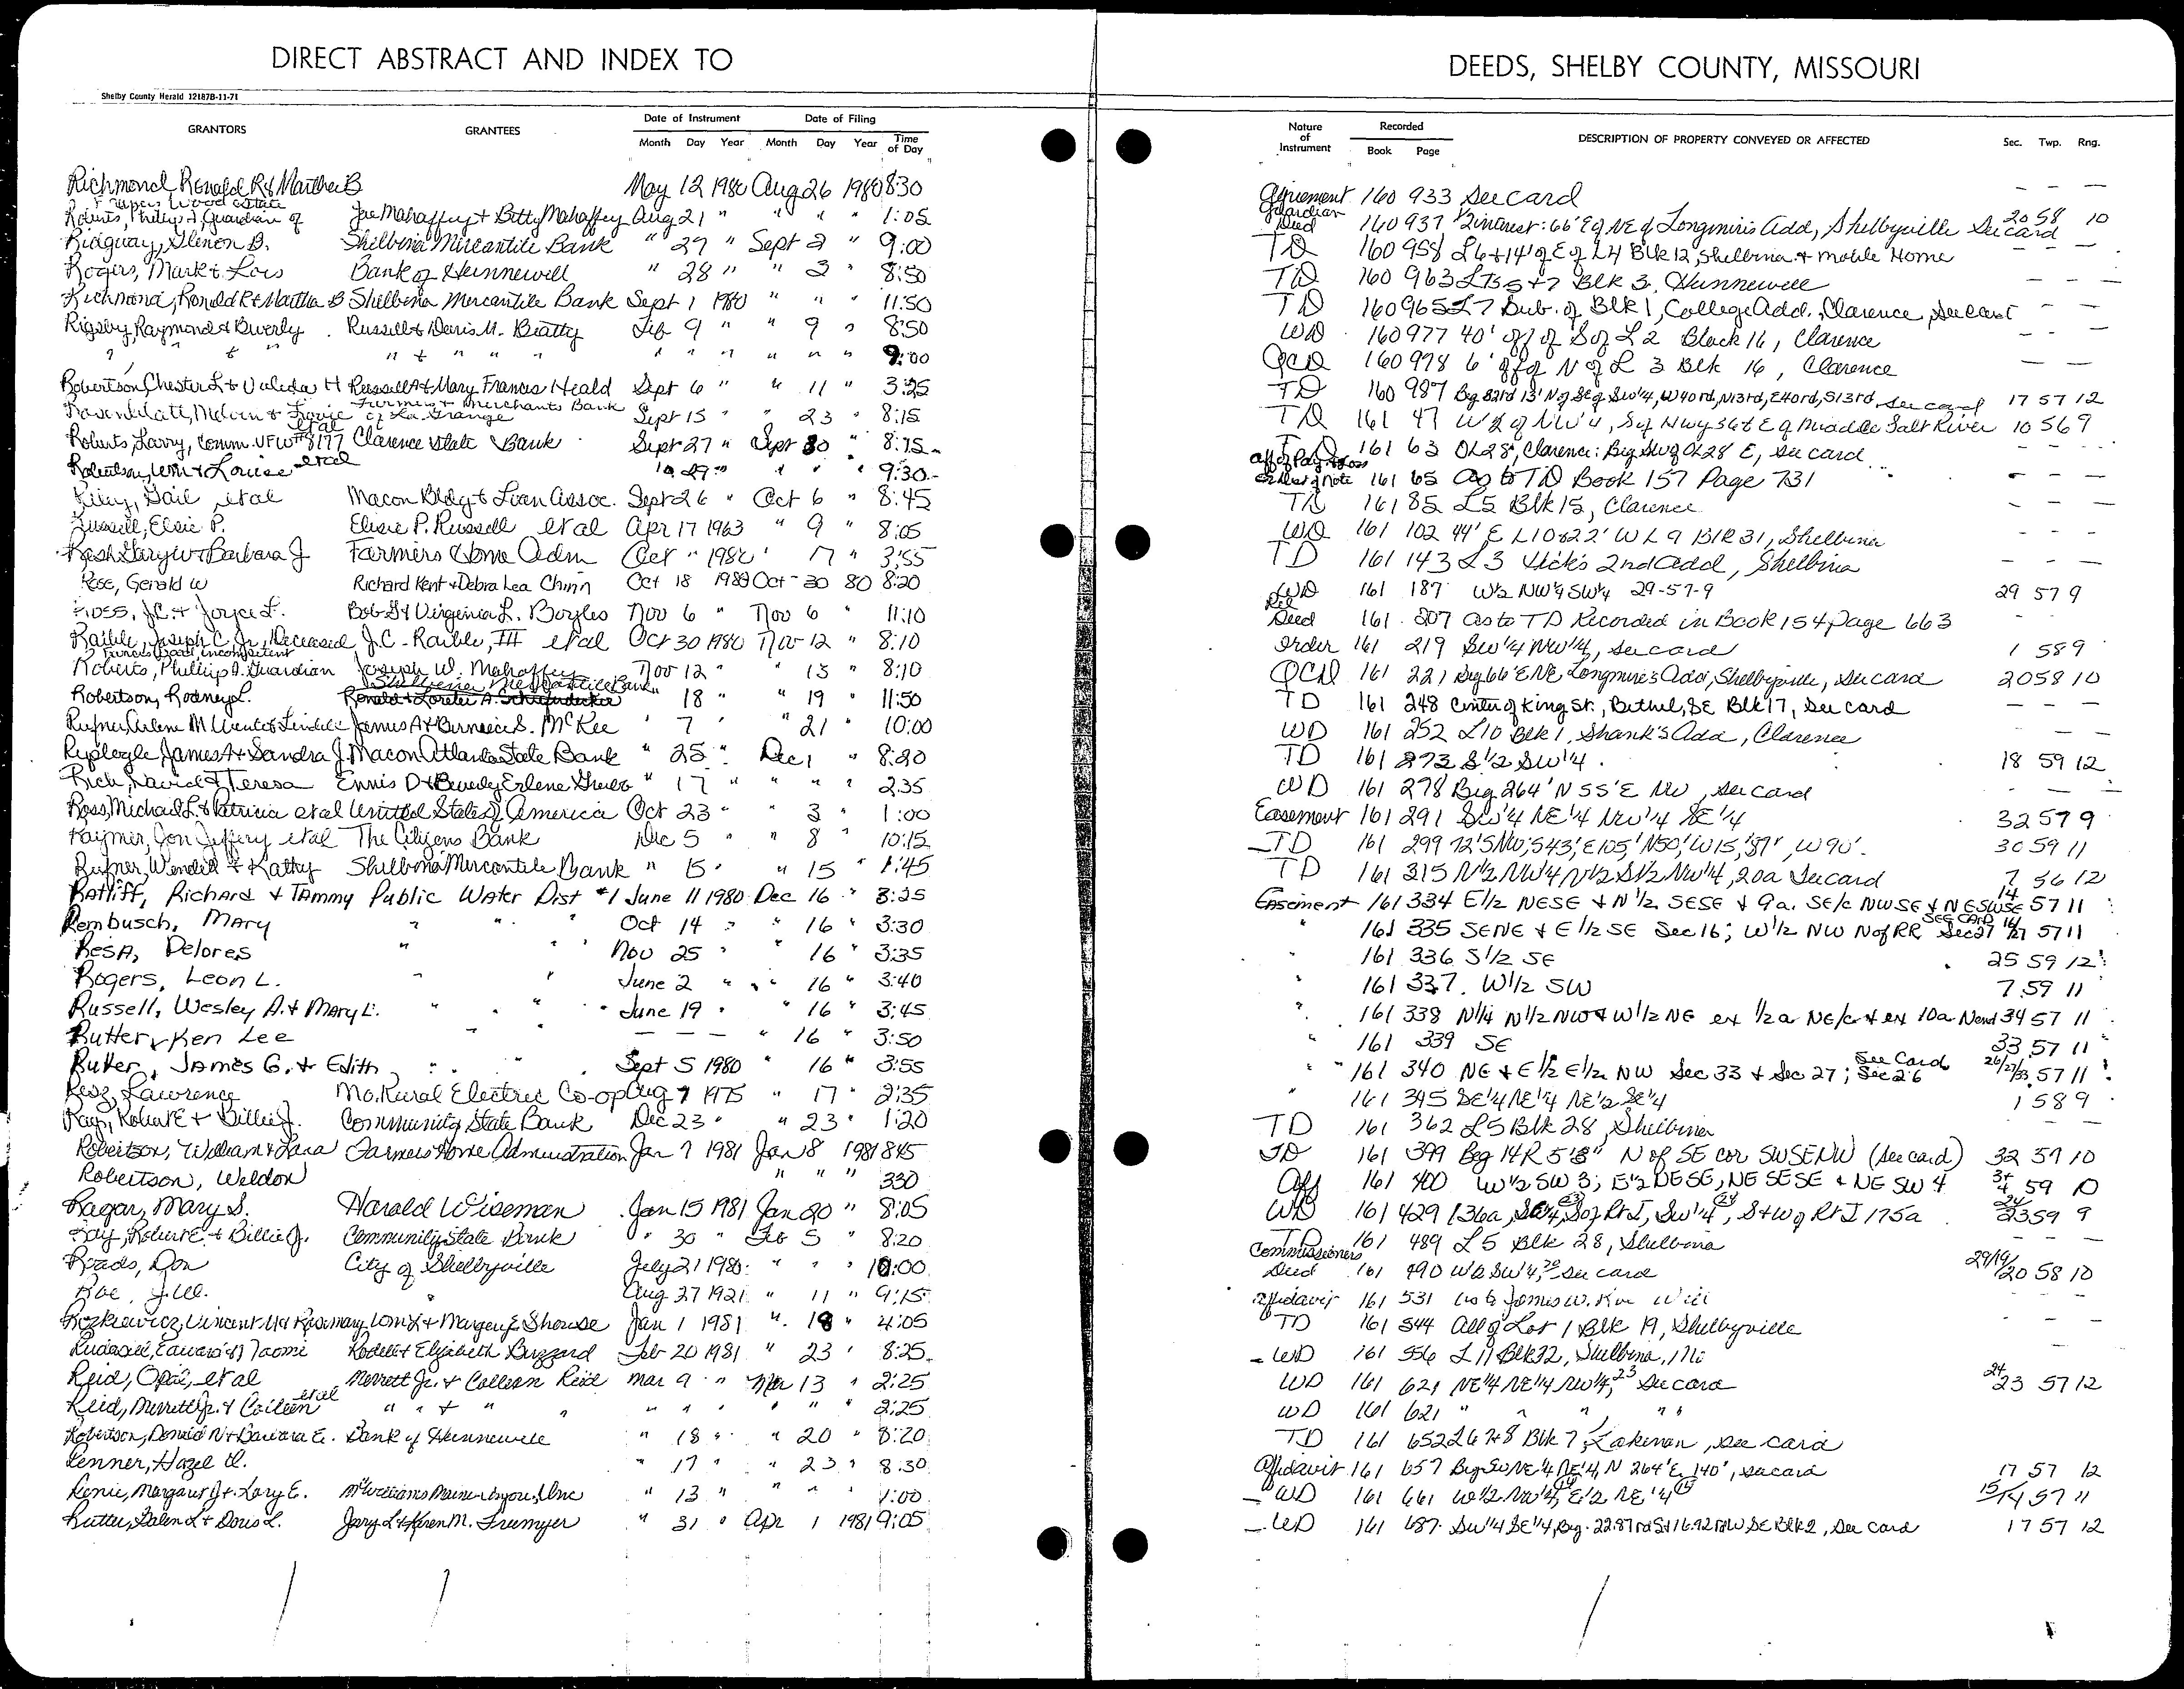 DIRECT ABSTRACT AND INDEX TO
Shelby County Herald 12187B-11-71
GRANTORS GRANTEES Date of Instrument Date of Filing
Month Day Year Month Day Year Time of Day
Richmond, Ronald R & Martha B May 12 1980 Aug 26 1980 8:30
Wood Estate
Roberts, Philip A, Guardian of Joe Mahaffey & Betty Mahaffey Aug 21 " " " " 1:05
Ridgway, Glenon B. Shelbina Mercantile Bank " 29 " Sept 2 " 9:00
Rogers, Mark & Lois Bank of Hunnewell " 28 " " 3 " 8:50
Richmond, Ronald R & Martha B Shelbina Mercantile Bank Sept 1 1980 " " " 11:50
Rigsby, Raymond & Beverly Russell & Doris M. Beatty Feb 9 " " 9 " 8:50
" " & " " " & " " " " " " " " " 9:00
Robertson, Chester L & Valeda H Russell A & Mary Frances Heald Sept 6 " " 11 " 3:25
Farmers & Merchants Bank
Melvin & of La Grange Sept 15 " " 23 " 8:15
et al
Roberts, Larry, Comm. VFW #8177 Clarence State Bank Sept 27 " Sept 30 " 8:15
Robertson, Wm & Louise et al " 29 " " " " 9:30
Riley, Gail et al Macon Bldg & Loan Assoc. Sept 26 " Oct 6 " 8:45
Russell, Elsie P. Elsie P. Russell et al Apr 17 1963 " 9 " 8:05
Rash Gary W & Barbara J Farmers Home Adm Oct " 1980 " 17 " 3:55
Rose, Gerald W Richard Kent & Debra Lea Chinn Oct 18 1980 Oct 30 80 8:20
Ross, J.C. & Joyce F. Bob G & Virginia L. Boyles Nov 6 " Nov 6 " 11:10
Raible, Joseph C. Jr., Deceased J.C. Raible, III et al Oct 30 1980 Nov 12 " 8:10
incompetent
Roberts, Phillip A. Guardian Joseph W. Mahaffey Nov 12 " " 13 " 8:10
Shelbina Mercantile Bank
Robertson, Rodney L. " 18 " " 19 " 11:50
James A & Berneice S. McKee " 7 " " 21 " 10:00
Replogle James A & Sandra J. Macon Atlanta State Bank " 25 " Dec 1 " 8:20
Rich, David & Teresa Ennis D & Beverly Erlene " 17 " " " " 2:35
Ross, Michael L. & Patricia et al United States of America Oct 23 " " 3 " 1:00
Raymer, Jon Jeffery et al The Citizens Bank Dec 5 " " 8 " 10:15
Rufner, Wendell & Kathy Shelbina Mercantile Bank " 15 " " 15 " 1:45
Ratliff, Richard & Tammy Public Water Dist #1 June 11 1980 Dec 16 " 3:25
Rembusch, Mary " " " Oct 14 " " 16 " 3:30
Resa, Delores " " " Nov 25 " " 16 " 3:35
Rogers, Leon L. " " June 2 " " 16 " 3:40
Russell, Wesley A. & Mary L. " " " June 19 " " 16 " 3:45
Rutter, Ken Lee " " " — — — " 16 " 3:50
Rutter, James G. & Edith " " " Sept 5 1980 " 16 " 3:55
Resz, Lawrence Mo. Rural Electric Co-op Aug 7 1975 " 17 " 2:35
Ray, Robert E & Billie J. Community State Bank Dec 23 " " 23 " 1:20
Robertson, William & Lana Farmers Home Administration Jan 7 1981 Jan 8 1981 8:45
Robertson, Weldon " " " 330
Ragar, Mary S. Harold Wiseman Jan 15 1981 Jan 20 " 8:05
Ray, Robert E. & Billie J. Community State Bank " 30 " Feb 5 " 8:20
Roads, Don City of Shelbyville July 21 1980 " " " 10:00
Roe, J.W. Aug 27 1921 " 11 " 9:15
Rozkiewicz, Vincent W & Rosemary Wm L & Margery E Shouse Jan 1 1981 " 18 " 4:05
Rudasill, Edward & Naomi Rodell & Elizabeth Buzzard Feb 20 1981 " 23 " 8:25
Reid, Opal, et al Merrett Jr. & Colleen Reid Mar 9 " Mar 13 " 2:25
Reid, Merrett Jr. & Colleen et al " " & " " " " " " " " 2:25
Robertson, Donald N & Barbara E. Bank of Hunnewell " 18 " " 20 " 8:20
Renner, Hazel D. " 17 " " 23 " 8:30
Margaret J & Lary E. " 13 " " " " 1:00
Rutter, Galen L & Doris L. Gary L & Karen M. Fremyer " 31 " Apr 1 1981 9:05
DEEDS, SHELBY COUNTY, MISSOURI
Nature of Instrument Recorded Book Page DESCRIPTION OF PROPERTY CONVEYED OR AFFECTED Sec. Twp. Rng.
Agreement 160 933 See card — — —
Guardian Deed 160 937 1/2 interest: 66' E of NE of Longmires Add, Shelbyville See card 20 58 10
TD 160 958 L6 & 14' of E of L4 Blk 12, Shelbina & Mobile Home — — —
TD 160 963 Lts 5 & 7 Blk 3, Hunnewell — — —
TD 160 965 L7 Sub. of Blk 1, College Add., Clarence, See card — — —
WD 160 977 40' off of S of L 2 Block 16, Clarence — — —
QCD 160 978 6' off of N of L 3 Blk 16, Clarence — —
TD 160 987 Beg 82rd 13' N of SE of SW1/4, W40rd, N13rd, E40rd, S13rd, See card 17 57 12
TD 161 47 W1/2 of NW1/4, S of Hwy 36 & E of Middle Salt River 10 56 9
TD 161 63 OL28, Clarence: Beg SW of OL28 E, See card
Aff of Pay & Loss or Dest of Note 161 65 As to TD Book 157 Page 731 — — —
TD 161 85 L5 Blk 15, Clarence — — —
WD 161 102 44' E L10 & 22' W L 9 Blk 31, Shelbina - - -
TD 161 143 L3 Hick's 2nd Add, Shelbina — — —
WD 161 187 W1/2 NW1/4 SW1/4 29-57-9 29 57 9
Rel Deed 161 207 As to TD Recorded in Book 154 page 663
Order 161 219 SW1/4 NW1/4, See card 1 58 9
QCD 161 221 Beg 66' E NE Longmire's Add, Shelbyville, See card 20 58 10
TD 161 248 Center of King St., Bethel, SE Blk 17, See card — — —
WD 161 252 L10 Blk 1, Shank's Add, Clarence — — —
TD 161 273 S1/2 SW1/4 18 59 12
WD 161 278 Beg 264' N 55' E NW, See card — — —
Easement 161 291 SW1/4 NE1/4 NW1/4 SE1/4 32 57 9
TD 161 299 72' S NW; S43', E105', N50', W15', W90'. 30 59 11
TD 161 315 N1/2 NW1/4 N1/2 S1/2 NW1/4, 20a See card 7 56 12
Easement 161 334 E1/2 NESE & N1/2 SESE & 9a. SE/c NWSE & NESWSE 14 57 11
SEE CARD
" 161 335 SENE & E1/2 SE Sec 16; W1/2 NW N of RR Sec 27 16/27 57 11
" 161 336 S1/2 SE 25 59 12
" 161 337 W1/2 SW 7 59 11
" 161 338 N1/4 N1/2 NW & W1/2 NE ex 1/2a NE/c & ex 10a N end 34 57 11
" 161 339 SE 33 57 11
See Card
" 161 340 NE & E1/2 E1/2 NW Sec 33 & Sec 27; Sec 26 26/27/33 57 11
" 161 345 SE1/4 NE1/4 NE1/2 SE1/4 1 58 9
TD 161 362 L5 Blk 28, Shelbina — —
TD 161 399 Beg 14R 5'8" N of SE cor SWSENW (See card) 32 59 10
Aff 161 400 W1/2 SW 3; E1/2 NESE, NE SESE & NE SW 4 3+4 59 10
WD 161 429 136a, SE1/4, S of Rt J, SW1/4, S & W of Rt J 175a 24 23 59 9
TD 161 489 L5 Blk 28, Shelbina — — —
Commissioners Deed 161 490 W2 SW1/4, See card 29/19/20 58 10
Affidavit 161 531 As to James W. Roe Will — — —
TD 161 544 All of Lot 1 Blk 19, Shelbyville — — —
WD 161 556 L 11 Blk 32, Shelbina, Mo
WD 161 621 NE1/4 NE1/4 NW1/4, 23 See card 24 23 57 12
WD 161 621 " " " "
TD 161 652 L6 7 & 8 Blk 7, Lakenan, See card
Affidavit 161 657 Beg SW NE1/4 NE1/4, N 264' E 140', See card 17 57 12
WD 161 661 W1/2 NW1/4, E1/2 NE1/4 15/14 57 11
WD 161 687 SW1/4 SE1/4, Beg. 22.87rd S & 16.92rd W SE Blk 2, See card 17 57 12